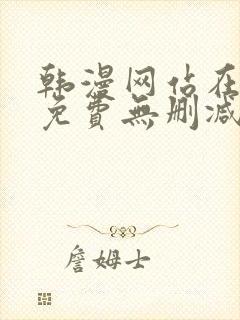 韩漫网站在
免費無删减
詹姆士